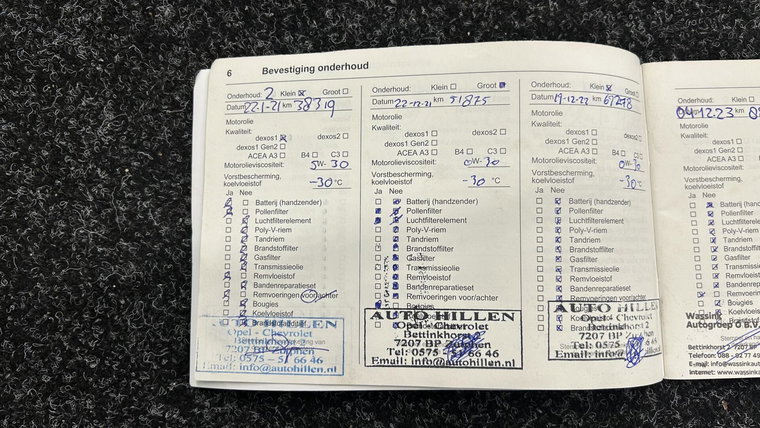 6 Bevestiging onderhoud
Onderhoud: 2 Klein Groot
Datum 22-1-21 km 38319
Motorolie
Kwaliteit:
dexos1 dexos2
dexos1 Gen2
ACEA A3 B4 C3
Motorolieviscositeit: 5W-30
Vorstbescherming,
koelvloeistof -30 °C
Ja Nee
Batterij (handzender)
Pollenfilter
Luchtfilterelement
Poly-V-riem
Tandriem
Brandstoffilter
Gasfilter
Transmissieolie
Remvloeistof
Bandenreparatieset
Remvoeringen voor/achter
Bougies
Koelvloeistof
AUTO HILLEN
Opel - Chevrolet
Bettinkhorst 2
7207 BP Zutphen
Tel: 0575 - 51 66 46
Email: info@autohillen.nl
Onderhoud: Klein Groot
Datum 22-12-21 km 51875
Motorolie
Kwaliteit:
dexos1 dexos2
dexos1 Gen2
ACEA A3 B4 C3
Motorolieviscositeit: 0W-30
Vorstbescherming,
koelvloeistof -30 °C
Ja Nee
Batterij (handzender)
Pollenfilter
Luchtfilterelement
Poly-V-riem
Tandriem
Brandstoffilter
Transmissieolie
Remvloeistof
Bandenreparatieset
Remvoeringen voor/achter
Bougies
AUTO HILLEN
Opel - Chevrolet
Bettinkhorst 2
7207 BP Zutphen
Tel: 0575 - 51 66 46
Email: info@autohillen.nl
Onderhoud: Klein Groot
Datum 19-12-22 km 67278
Motorolie
Kwaliteit:
dexos1 dexos2
dexos1 Gen2
ACEA A3 B4 C3
Motorolieviscositeit: 0W-30
Vorstbescherming,
koelvloeistof -30 °C
Ja Nee
Batterij (handzender)
Pollenfilter
Luchtfilterelement
Poly-V-riem
Tandriem
Brandstoffilter
Gasfilter
Transmissieolie
Remvloeistof
Bandenreparatieset
Remvoeringen voor/achter
AUTO HILLEN
Opel - Chevrolet
Bettinkhorst 2
7207 BP Zutphen
Tel: 0575
Email: info@
Onderhoud: Klein
Datum 04-12-23 km
Motorolie
Kwaliteit:
dexos1
dexos1 Gen2
ACEA A3
Motorolieviscositeit:
Vorstbescherming,
koelvloeistof
Ja Nee
Batterij (handzender)
Pollenfilter
Luchtfilterelement
Poly-V-riem
Tandriem
Brandstoffilter
Gasfilter
Transmissieolie
Remvloeistof
Bandenreparatieset
Remvoeringen
Bougies
Wassink
Autogroep O B.V.
Bettinkhorst 2, 7207 BP
Telefoon: 088 - 92 77
E-mail: info@wassink
Internet: www.wassink